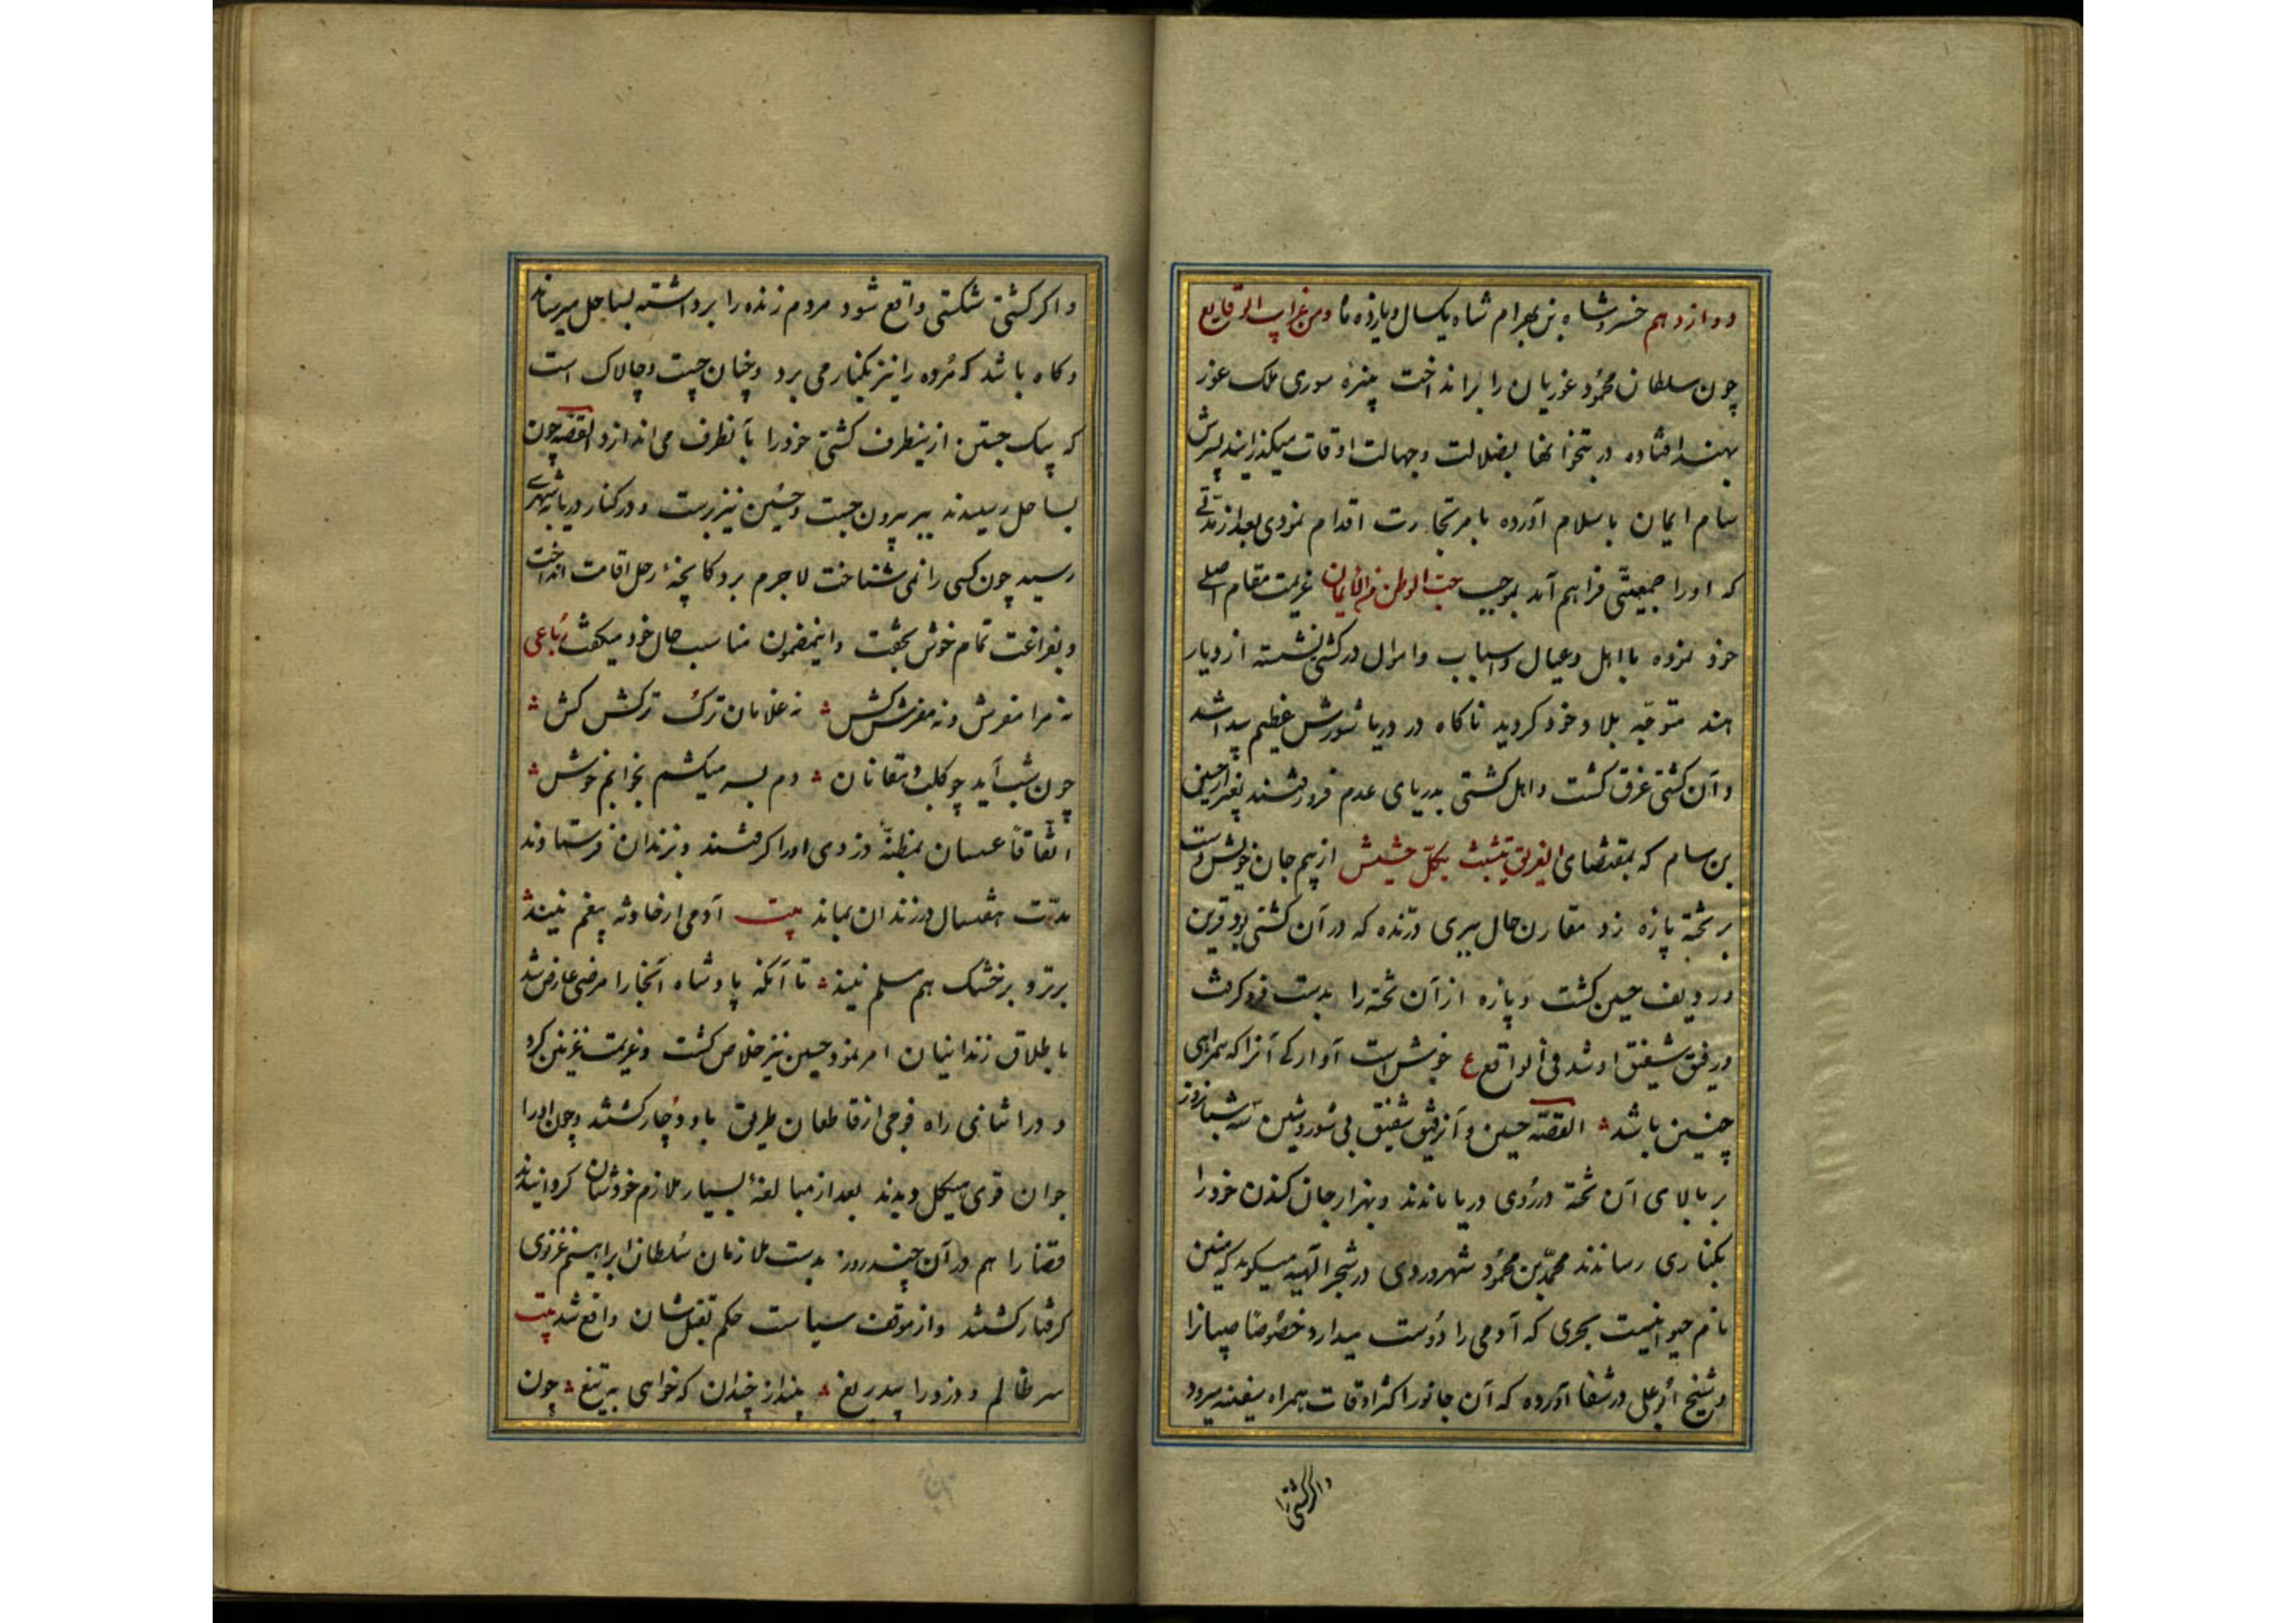 دوازدهم خسروشاه بن بهرام شاه یکسال و یازده ماه ومن غرایب الوقایع
چون سلطان محمود غوریان را برانداخت پنیرهٔ سوری ملک غور
بهند افتاده در بتخانها بضلالت وجهالت اوقات میکذرانید پسرش
سام ایمان باسلام آورده بامر تجارت اقدام نمودی بعد از مدتی
که اورا جمعیتی فراهم آمد بموجب حب الوطن من الایمان عزیمت مقام اصلی
خود نموده با اهل وعیال واسباب واموال در کشتی نشسته از دیار
هند متوجه بلاد خود کردید ناکاه در دریا شورش عظیم پیدا شد
وآن کشتی غرق کشت واهل کشتی بدریای عدم فرو رفتند بغیر از حسین
بن سام که بمقتضای الغریق یتشبث بکل حشیش از بیم جان خویش دست
بر تخته پاره زد مقارن حال ببری درنده که در آن کشتی بود قرین
وردیف حسین کشت وپاره از آن تخته را بدست فرو کرفت
ورفیق شفیق او شد فی الواقع ع خوش است آوارکی آنرا که همراهی
چنین باشد القصه حسین وآن رفیق شفیق بی شور وشین سه شبانروز
بر بالای آن تخته در روی دریا ماندند وبهزار جان کندن خود را
بکناری رساندند محمد بن محمود شهروردی در شجر الهیه میکوید که
نام حیوانیست بحری که آدمی را دوست میدارد خصوصا صبیانرا
وشیخ ابو علی در شفا آورده که آن جانور اکثر اوقات همراه سفینه میرود
واکر کشتی
واکر کشتی شکستی واقع شود مردم زنده را برداشته بساحل میرساند
وکاه باشد که مرده را نیز بکنار می برد وچنان چست وچالاک است
که بیک جستن از ینطرف کشتی خود را بآنطرف می اندازد القصه چون
بساحل رسیدند ببر بیرون جست وحسین نیز برست ودر کنار دریا بشهری
رسید چون کسی را نمی شناخت لاجرم بر دکانچهٔ رحل اقامت انداخت
وبفراغت تمام خوش بخفت واینمضمون مناسب حال خود میکفت رباعی
نه مرا مفرش ونه مفرش کش نه غلامان ترک ترکش کش
چون شب آید چو کلب دهقانان دم بسر میکشم بخوابم خوش
اتفاقا عسسان بمظنهٔ دزدی اورا کرفتند وبزندان فرستادند
مدت هفتسال در زندان بماند بیت آدمی از حادثه بیغم نیند
بر تر و بر خشک هم مسلم نیند تا آنکه پادشاه آنجا را مرضی عارض شد
باطلاق زندانیان امر نمود حسین نیز خلاص کشت وعزیمت غزنین کرد
ودر اثنای راه فوجی از قاطعان طریق باو دوچار کشتند وچون اورا
جوان قوی هیکل دیدند بعد از مبالغهٔ بسیار ملازم خودشان کردانیدند
قضا را هم در آن چند روز بدست ملازمان سلطان ابراهیم غزنوی
کرفتار کشتند واز موقف سیاست حکم بقتلشان واقع شد بیت
سر ظالم ودزد را بیدریغ بینداز چندان که خواهی به تیغ چون